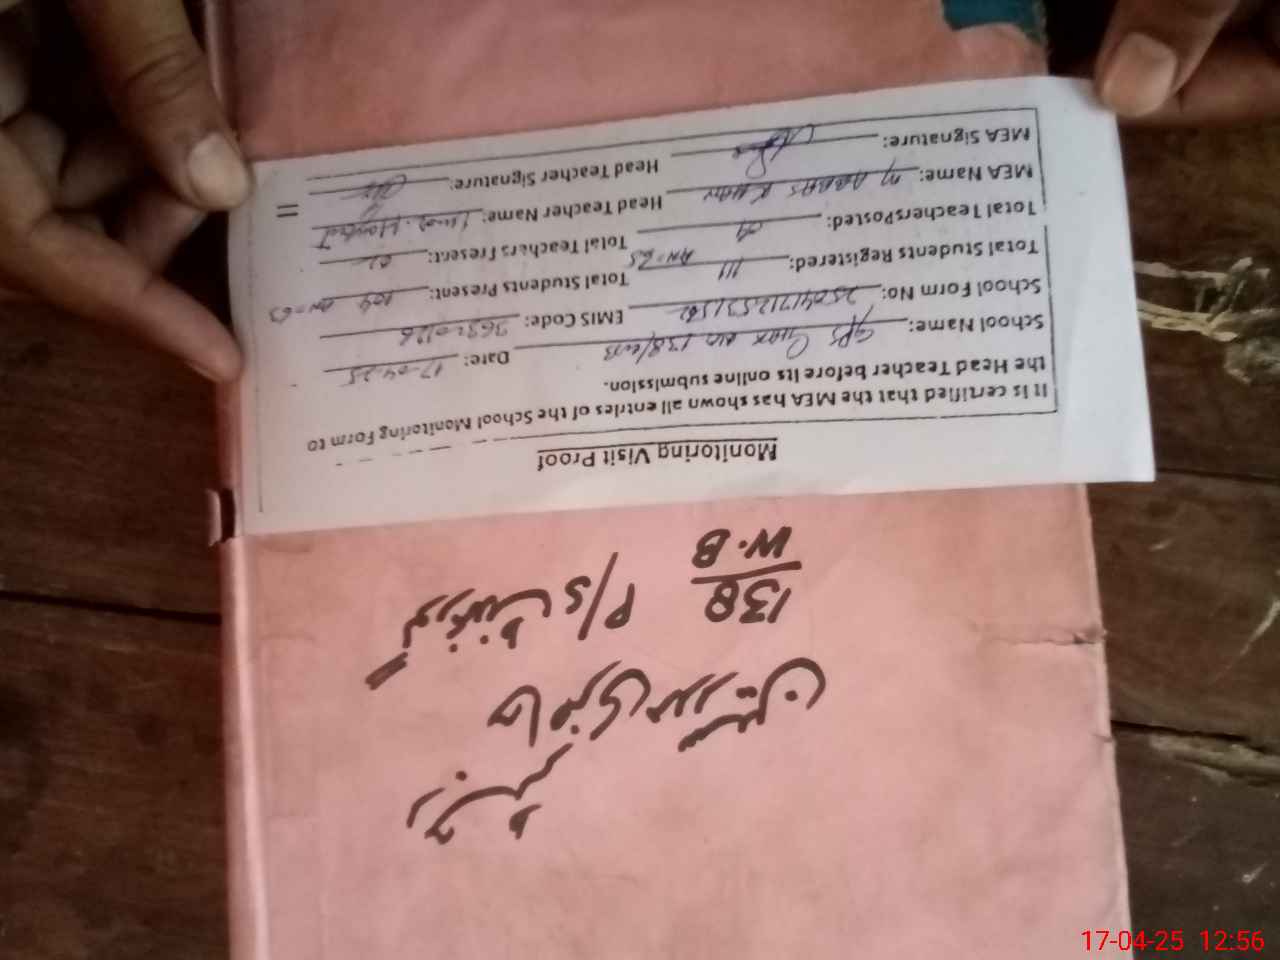 Monitoring Visit Proof
It is certified that the MEA has shown all entries of the School Monitoring Form to
the Head Teacher before its online submission.
School Name: GPS Chak No 138/WB Date: 17-04-25
School Form No: EMIS Code:
Total Students Registered: 111 Total Students Present: 104
Total Teachers Posted: 04 Total Teachers Present:
MEA Name: M ABBAS KHAN Head Teacher Name:
MEA Signature: Head Teacher Signature:
138
W.B
P/S
رجسٹر
حاضری مدرسین
17-04-25 12:56